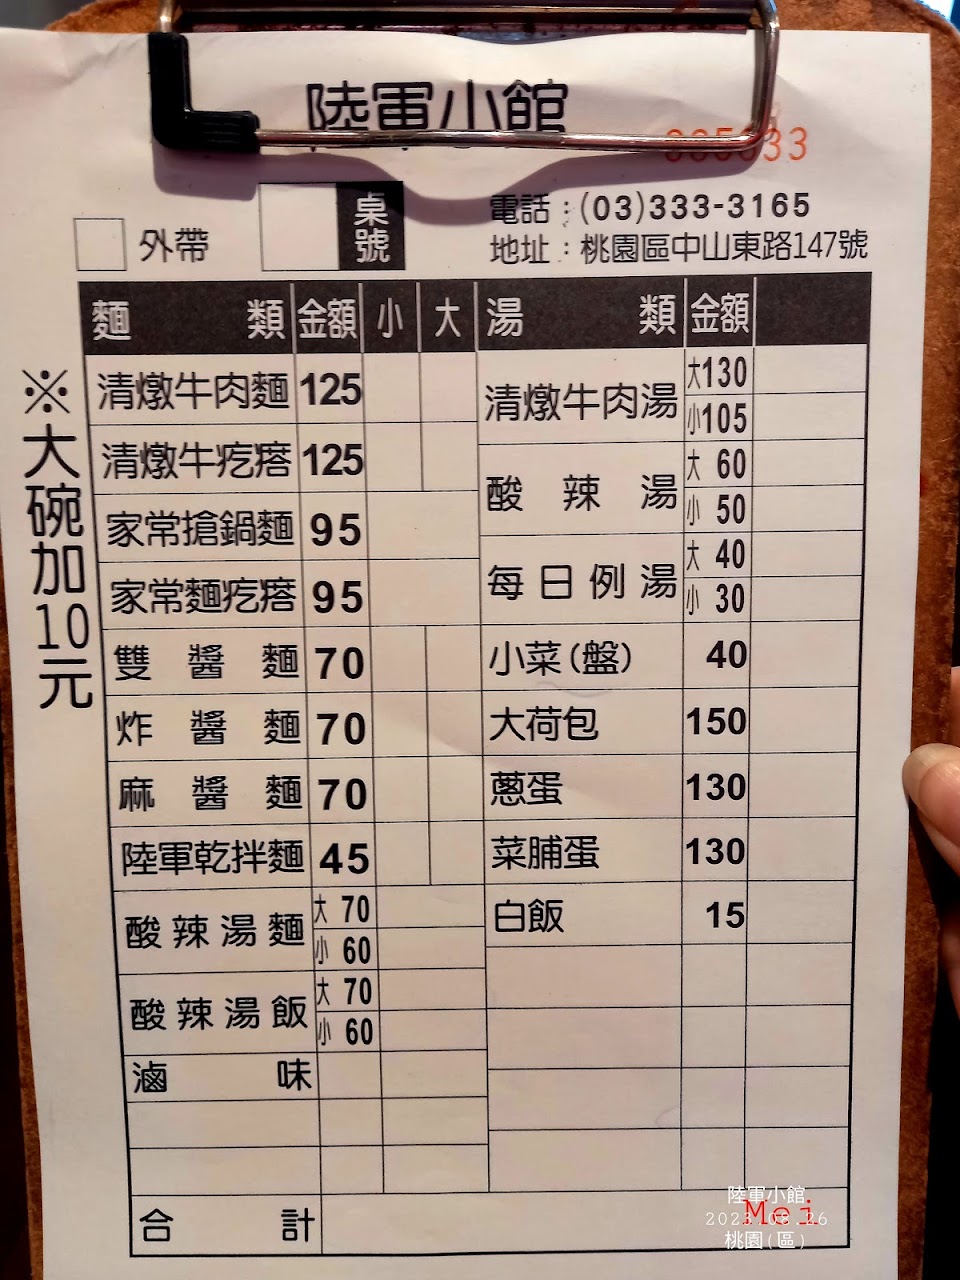 陸軍小館
005033
外帶
桌號
電話：(03)333-3165
地址：桃園區中山東路147號
※大碗加10元
麵類 金額 小 大
清燉牛肉麵 125
清燉牛疙瘩 125
家常搶鍋麵 95
家常麵疙瘩 95
雙醬麵 70
炸醬麵 70
麻醬麵 70
陸軍乾拌麵 45
酸辣湯麵 大 70
小 60
酸辣湯飯 大 70
小 60
滷味
合計
湯類 金額
清燉牛肉湯 大130
小105
酸辣湯 大 60
小 50
每日例湯 大 40
小 30
小菜(盤) 40
大荷包 150
蔥蛋 130
菜脯蛋 130
白飯 15
陸軍小館
2023.08.26
Mei
桃園(區)